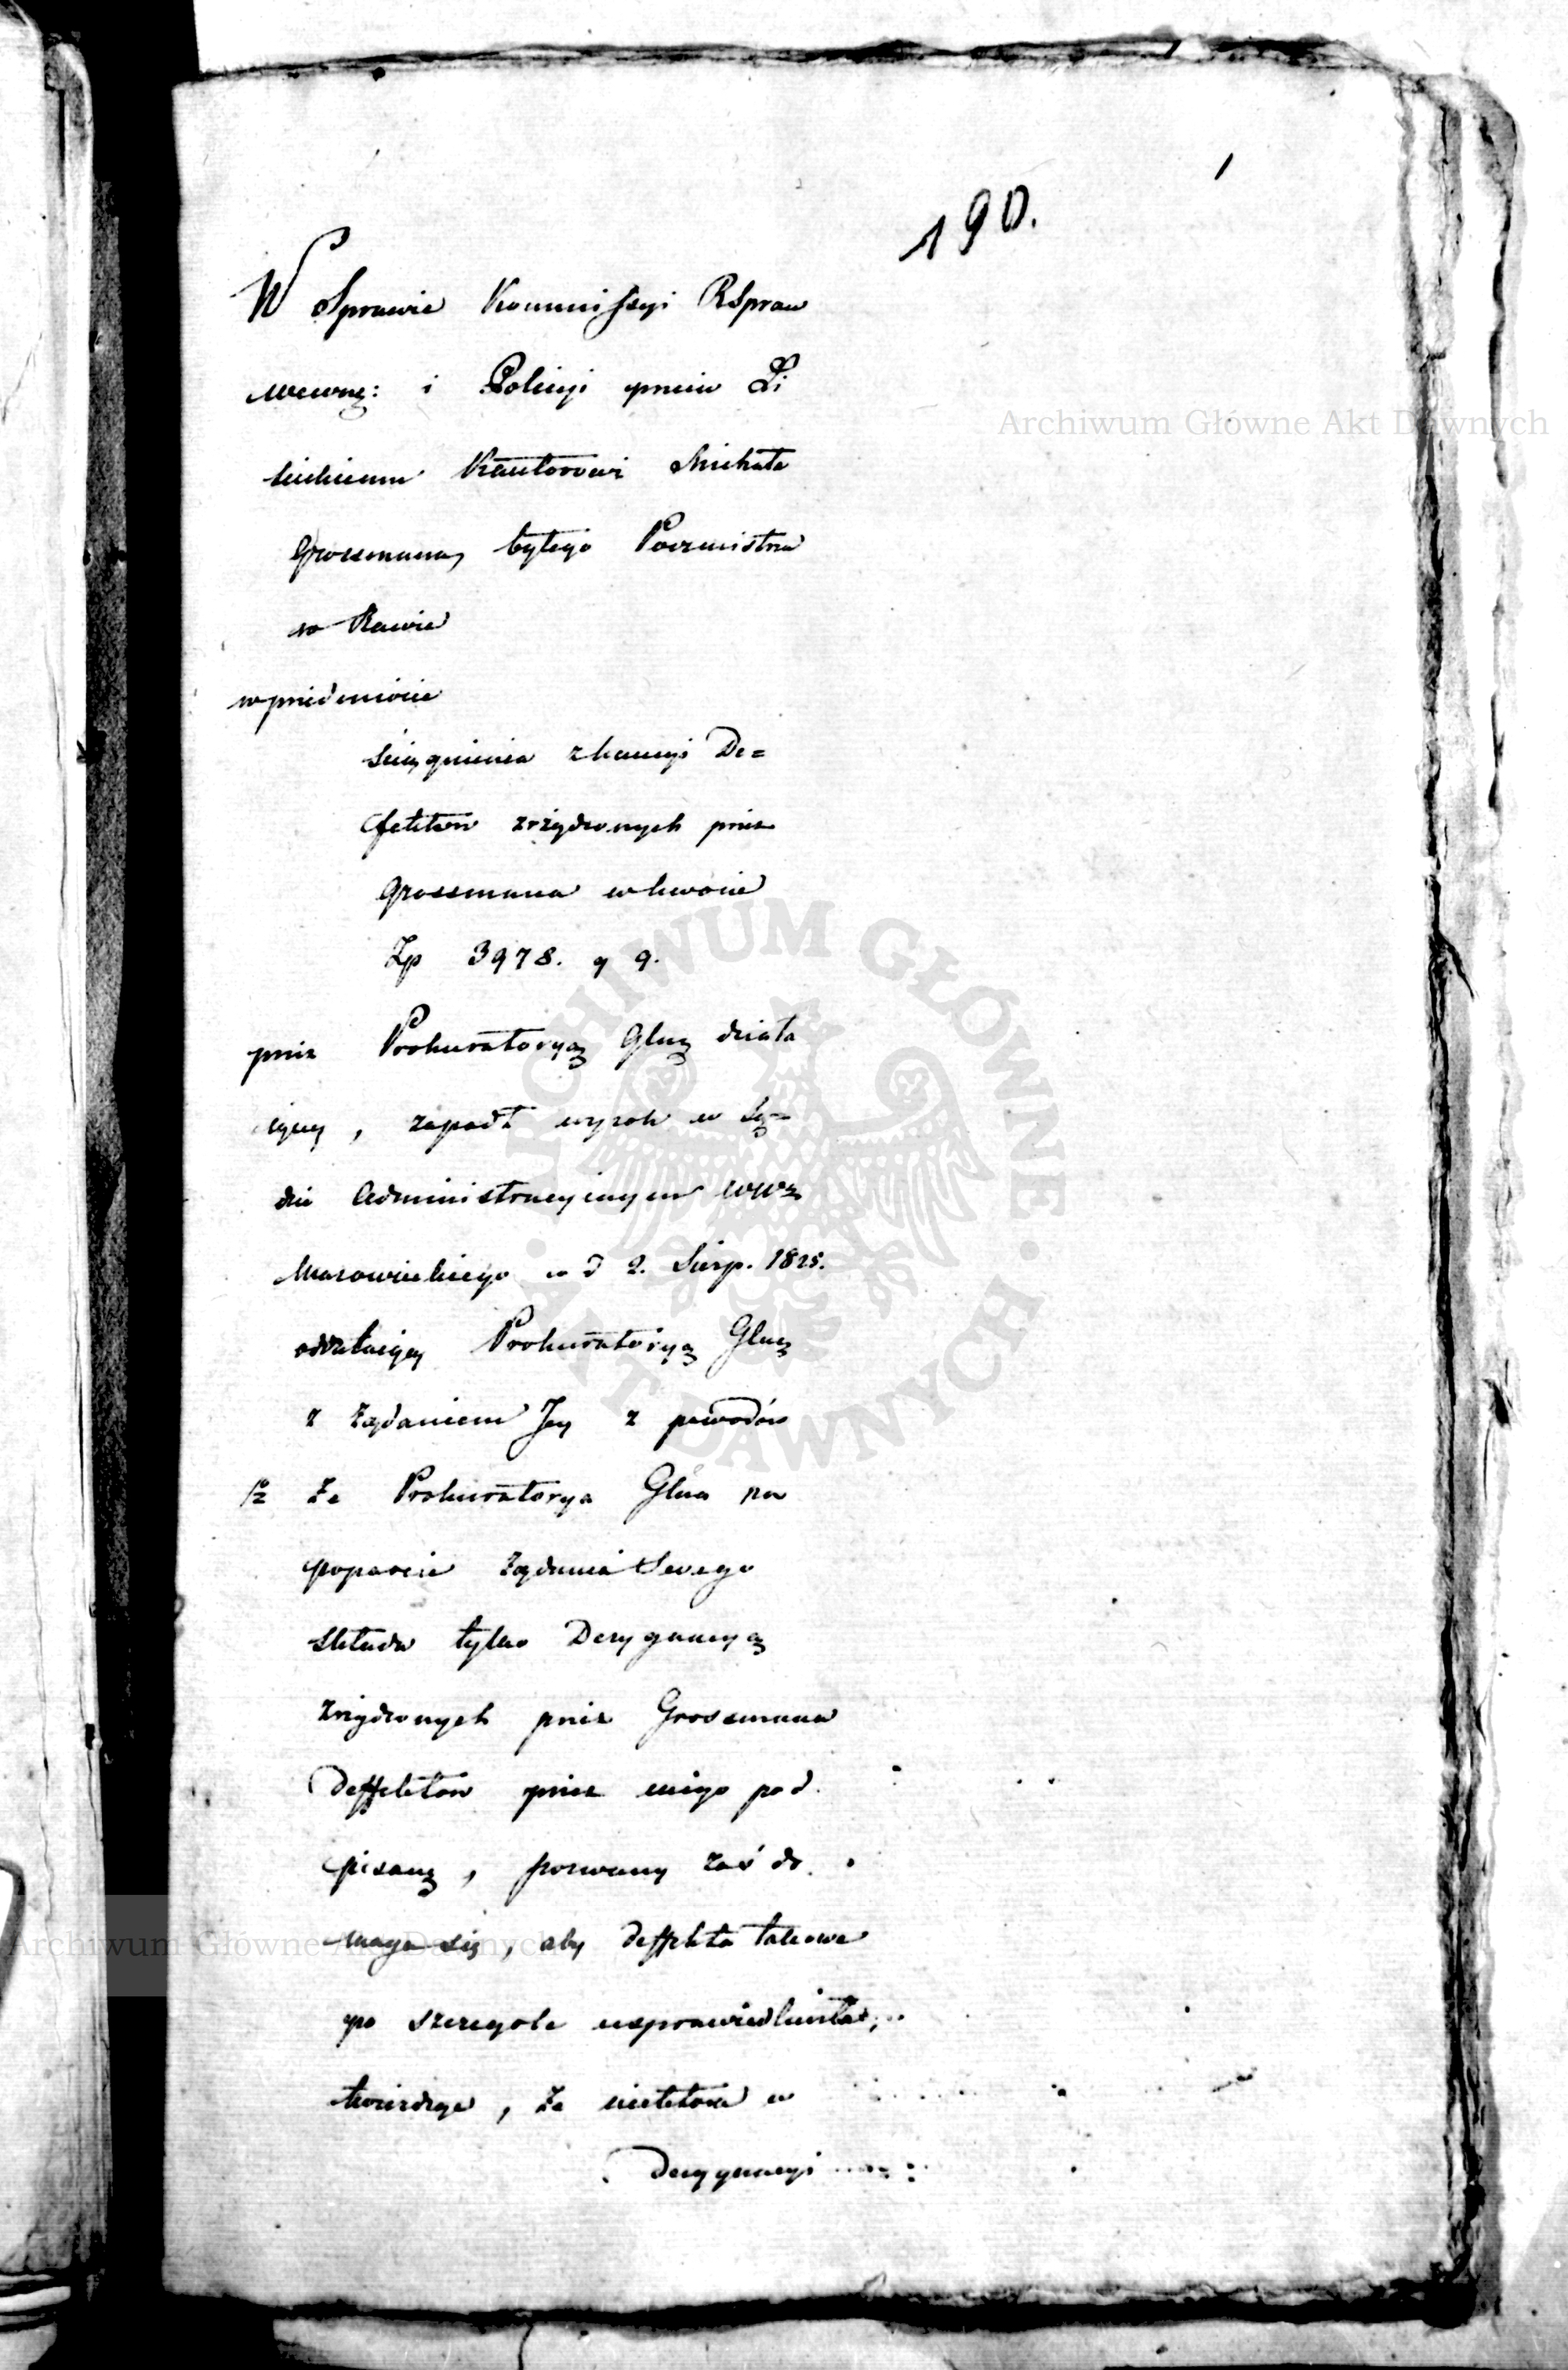 190.
W Sprawie Kommissyi RSpraw
wewnę: i Policyi przeciw Li
kiewiczowi Kautorowi Michała
Grossmana, byłego Poczmistrza
w Rawie
w przedmiocie
ściągnienia z kaucyi De=
fektów zrządzonych przez
Grossmana w kwocie
Zp 3978. g 9.
przez Prokuratoryą Glną działa
iący, zapadł wyrok w Są=
dzie Administracyinym WWa
Mazowieckiego w d 2. Sierp. 1825.
oddalaiący Prokuratoryą Glną
z żądaniem Jey z powodów
1o Że Prokuratorya Glna na
poparcie żądania Swego
składa tylko Dezygnacyą
zrządzonych przez Grossmana
Deffektów przez niego pod
pisaną, pozwany zaś do
maga się, aby deffekta takowe
po szczegole usprawiedliwiła,
twierdząc, że niektóre w
Dezygnacyi
Archiwum Główne Akt Dawnych
ARCHIWUM GŁÓWNE · AKT DAWNYCH ·
Archiwum Główne Akt Dawnych